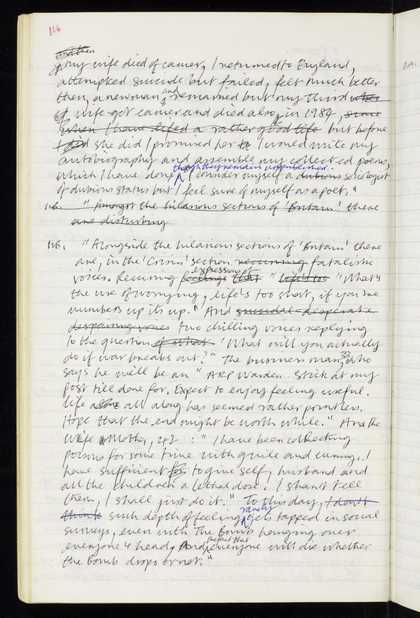 116
another
my wife died of cancer, I returned to England,
attempted suicide but failed, felt much better
then, a new man, and remarried but my third
wife got cancer and died also, in 1984, since
when I have lived a rather good life but before
she did I promised her I would write my
autobiography and assemble my collected poems,
which I have done, though they remain unpublished. I consider myself a dubious sociologist
of dubious status but I feel sure of myself as a poet."
116. "Amongst the hilarious sections of 'Britain' there
are disturbing
116. "Alongside the hilarious sections of 'Britain' there
are, in the 'Crisis' section, recurring fatalistic
voices. Recurring feelings expressions of that "life's too "What's
the use of worrying, life's too short, if you're
number's up it's up." And suicidal desperate
despairing voices two chilling voices replying
to the question of what 'What will you actually
do if war breaks out?" The business man, 33, who
says he will be an "ARP Warden. Stick at my
post till done for. Expect to enjoy feeling useful.
Life all along has seemed rather pointless.
Hope that the end might be worth while." And the
Wife & Mother, 42: "I have been collecting
poisons for some time with guile and cunning. I
have sufficient for to give self, husband and
all the children a lethal dose. I shan't tell
them, I shall just do it." To this day, I don't
think such depth of feeling rarely gets tapped in social
surveys, even with The Bomb hanging over
everyone's head, And the fact that everyone will die whether
the Bomb drops or not."